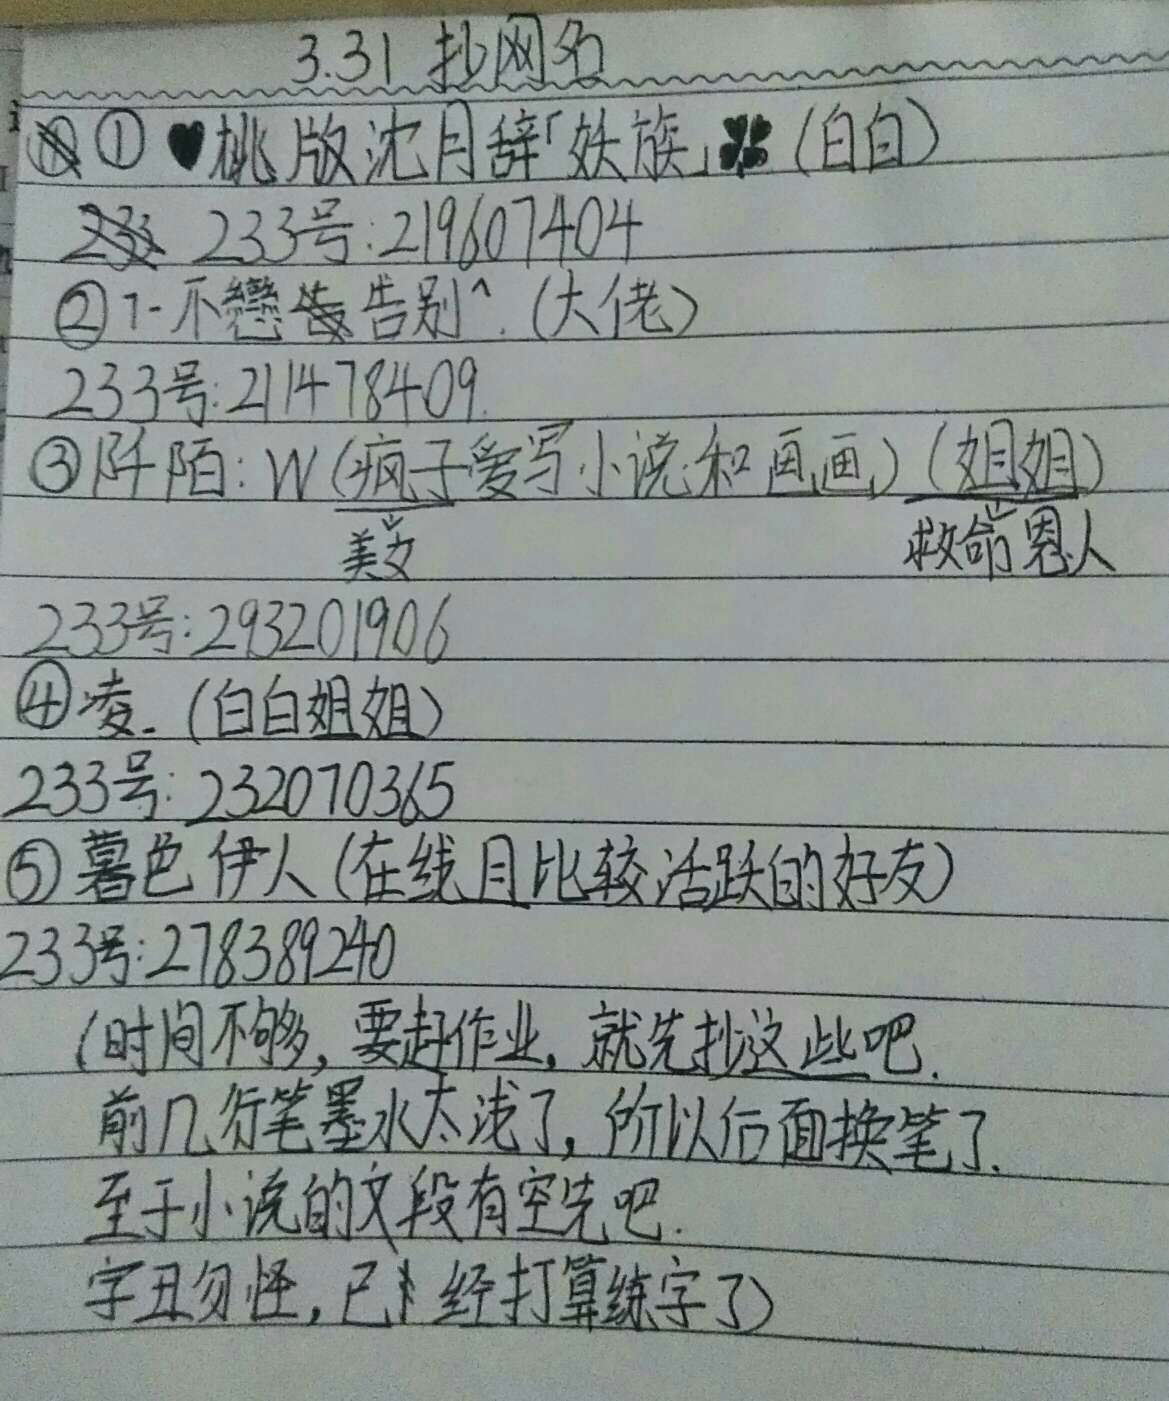 3.31 抄网名
① ♥桃版沈月辞「妖族」☘(白白)
233号:219607404
②1-不戀告别^.(大佬)
233号:211478409.
③阡陌:W(疯子爱写小说和画画)(姐姐)
美女 救命恩人
233号:293201906
④凌.(白白姐姐)
233号:232070365
⑤暮色伊人(在线且比较活跃的好友)
233号:278389240
(时间不够,要赶作业,就先抄这些吧.
前几行笔墨水太浅了,所以后面换笔了.
至于小说的文段有空先吧.
字丑勿怪,已经打算练字了)